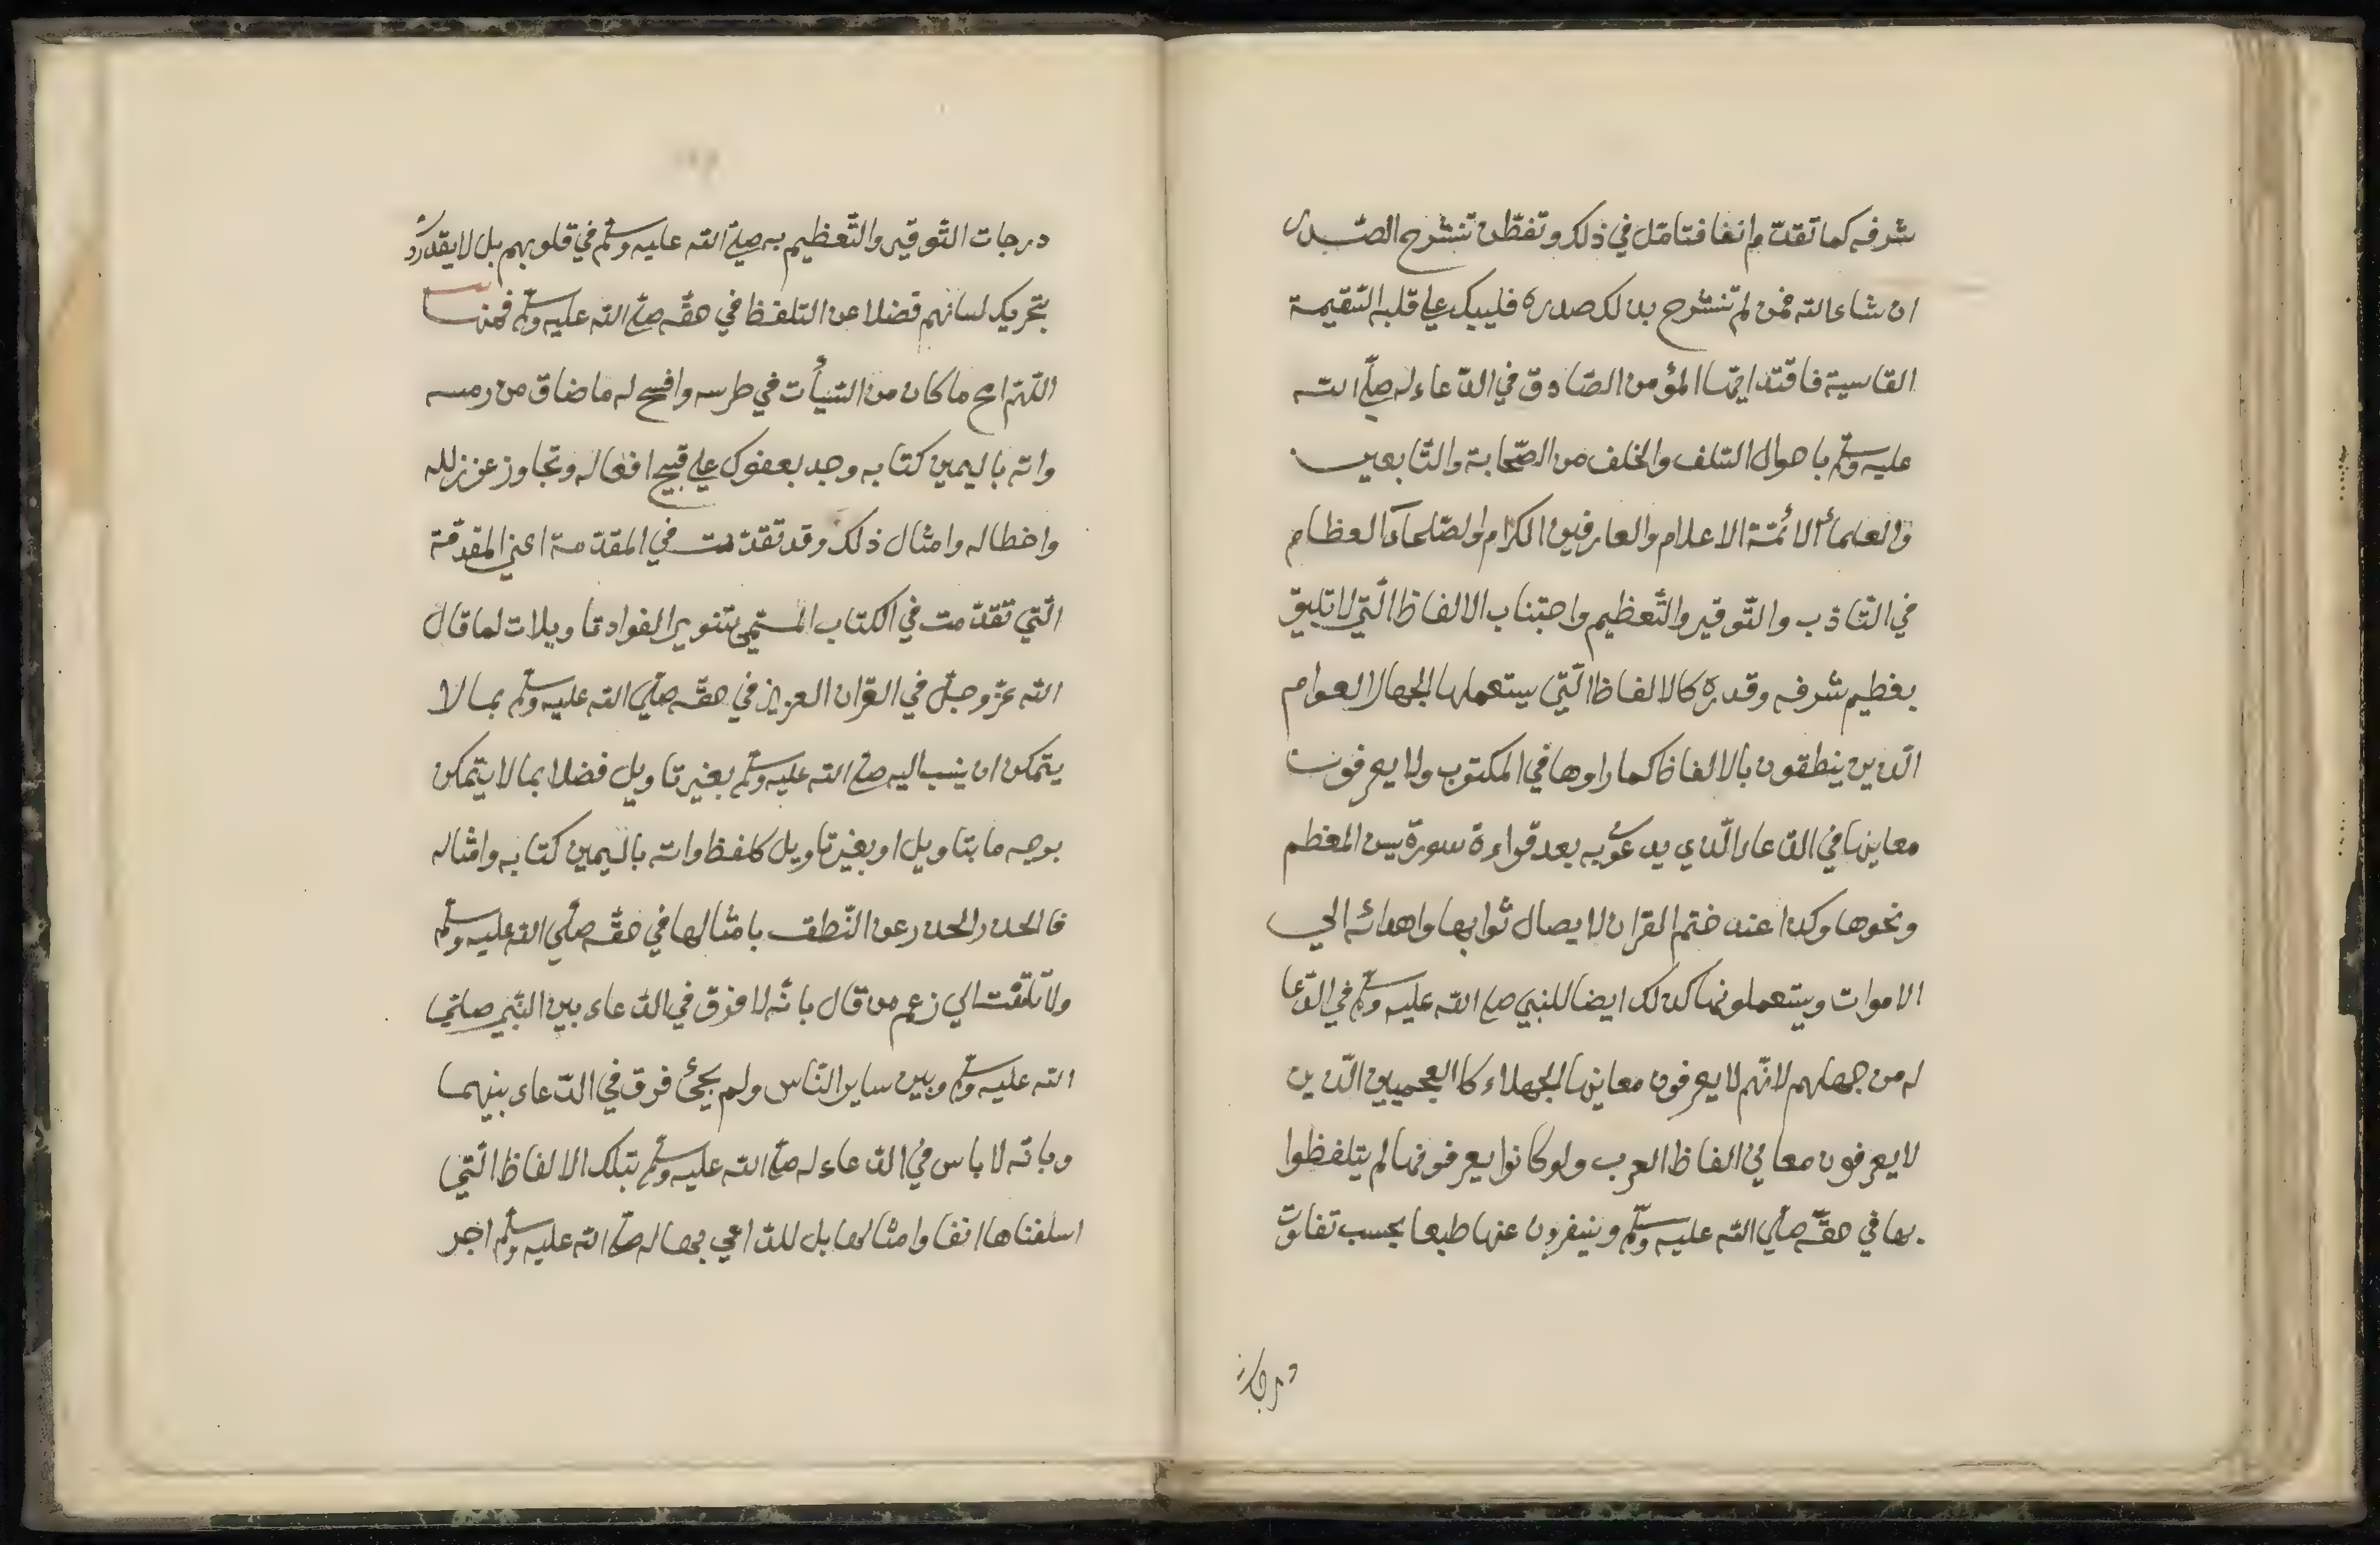 شرفه كما تقدّم انفا فتامّل في ذلك وتفطّن تنشرح الصّدر
ان شاء الله فمن لم تنشرح بذلك صدره فليبك علي قلبه السّقيمة
القاسية فاقتد ايّها المؤمن الصّادق في الدّعاء له صلّي الله
عليه وسلّم باحوال السّلف والخلف من الصّحابة والتّابعين
والعلماء الائمّة الاعلام والعارفين الكرام والصّلحاء العظام
في التّاذب والتّوقير والتّعظيم واجتناب الالفاظ الّتي لا تليق
بعظيم شرفه وقدره كالالفاظ الّتي يستعملها الجهال العوام
الّذين ينطقون بالالفاظ كما راوها في المكتوب ولا يعرفون
معاينها في الدّعاء الّذي يدعو به بعد قراءة سورة يس المعظم
ونحوها وكذا عند ختم القران لايصال ثوابها واهدائه الي
الاموات ويستعملونها كذلك ايضا للنبي صلي الله عليه وسلّم في الدّعا
له من جهلهم لانّهم لا يعرفون معاينها الجهلاء كا العجميين الّذين
لا يعرفون معاني الفاظ العرب ولو كانوا يعرفونها لم يتلفظوا
بها في حقّه صلّي الله عليه وسلّم وينفرون عنها طبعا بحسب تفاوت
درجات
درجات التّوقير والتّعظيم به صلّي الله عليه وسلّم في قلوبهم بل لا يقدر
بتحريك لسانهم فضلا عن التلفظ في حقّه صلّي الله عليه وسلّم فمنها
اللّهمّ امح ما كان من السّيأت في طرسه وافسح له ما ضاق من رمسه
واته باليمين كتابه وجد بعفوك علي قبيح افعاله وتجاوز عن زلله
واخطاله وامثال ذلك وقد تقدّمت في المقدّمة اعني المقدّمة
الّتي تقدّمت في الكتاب المسمّي بتنوير الفواد تاويلات لما قال
الله عزّ وجلّ في القران العزيز في حقّه صلّي الله عليه وسلّم بما لا
يتمكن ان ينسب اليه صلّي الله عليه وسلّم بغير تاويل فضلا بما لا يتمكن
بوجه ما بتاويل او بغير تاويل كلفظ واته باليمين كتابه وامثاله
فالحذر الحذر عن النّطق بامثالها في حقّه صلّي الله عليه وسلّم
ولا تلتفت الي زعم من قال بانّه لا فرق في الدّعاء بين النّبي صلّي
الله عليه وسلّم وبين ساير النّاس ولم يجئ فرق في الدّعاء بينهما
وبانّه لا باس في الدّعاء له صلّي الله عليه وسلّم بتلك الالفاظ الّتي
اسلفناها انفا وامثالها بل للدّاعي بها له صلّي الله عليه وسلّم اجر